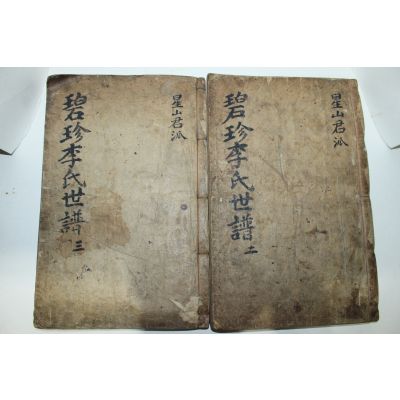 碧珍李氏世譜 三
星山君派
碧珍李氏世譜 二
星山君派